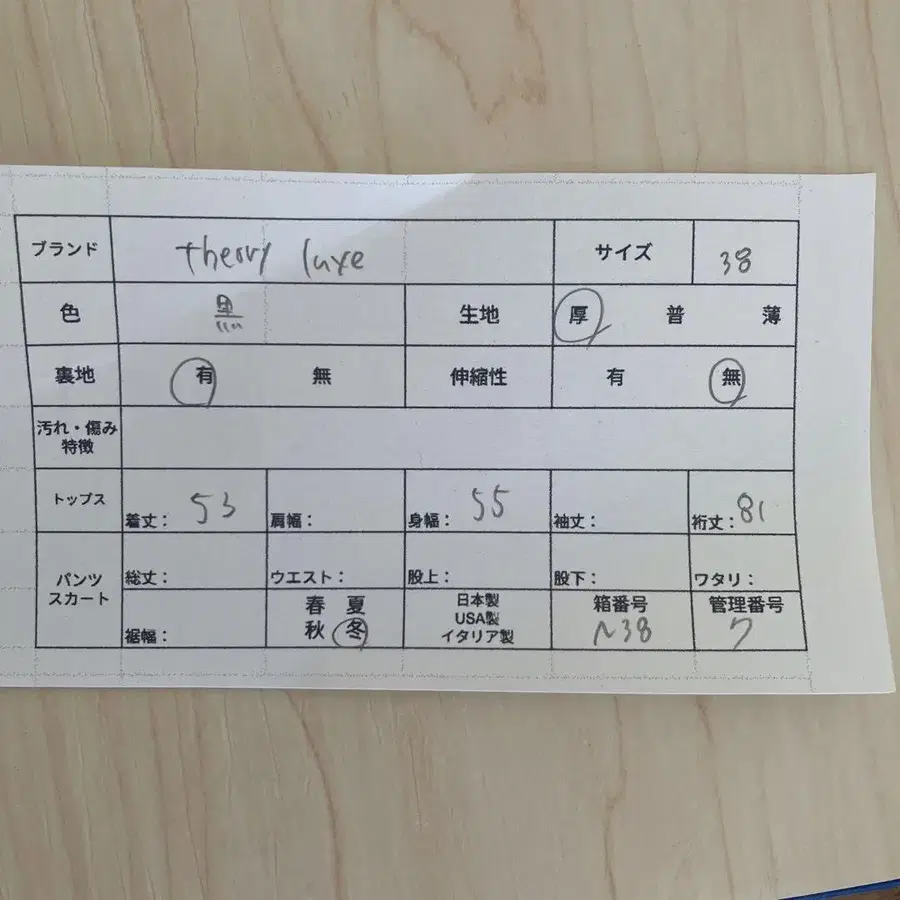 ブランド theory luxe サイズ 38
色 黒 生地 厚 普 薄
裏地 有 無 伸縮性 有 無
汚れ・傷み
特徴
トップス 着丈: 53 肩幅: 身幅: 55 袖丈: 裄丈: 81
パンツ
スカート
総丈: ウエスト: 股上: 股下: ワタリ:
裾幅:
春 夏
秋 冬
日本製
USA製
イタリア製
箱番号
N38
管理番号
7